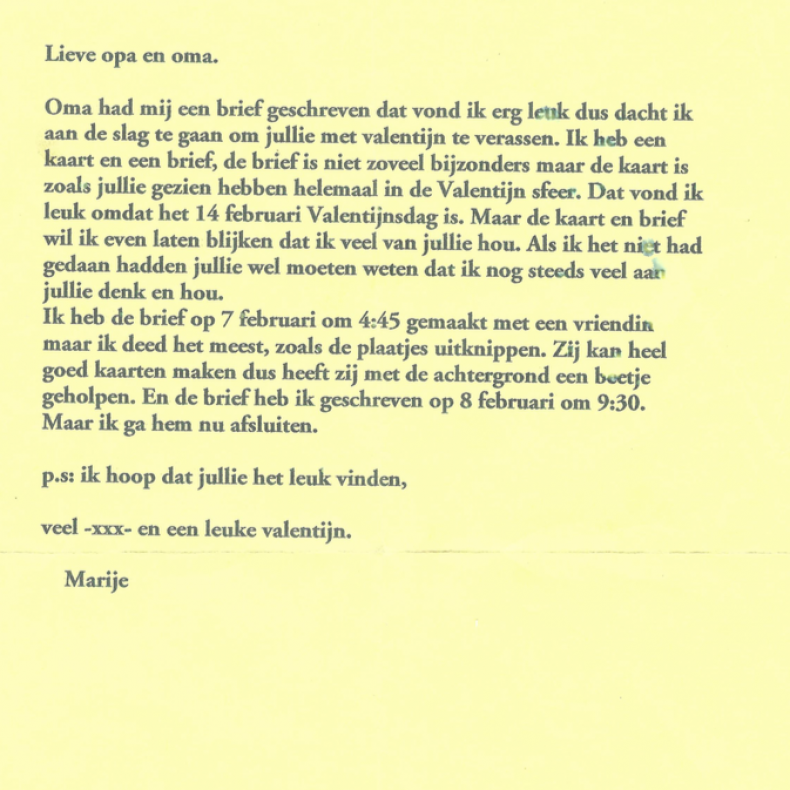 Lieve opa en oma.
Oma had mij een brief geschreven dat vond ik erg leuk dus dacht ik
aan de slag te gaan om jullie met valentijn te verassen. Ik heb een
kaart en een brief, de brief is niet zoveel bijzonders maar de kaart is
zoals jullie gezien hebben helemaal in de Valentijn sfeer. Dat vond ik
leuk omdat het 14 februari Valentijnsdag is. Maar de kaart en brief
wil ik even laten blijken dat ik veel van jullie hou. Als ik het niet had
gedaan hadden jullie wel moeten weten dat ik nog steeds veel aan
jullie denk en hou.
Ik heb de brief op 7 februari om 4:45 gemaakt met een vriendin
maar ik deed het meest, zoals de plaatjes uitknippen. Zij kan heel
goed kaarten maken dus heeft zij met de achtergrond een beetje
geholpen. En de brief heb ik geschreven op 8 februari om 9:30.
Maar ik ga hem nu afsluiten.
p.s: ik hoop dat jullie het leuk vinden,
veel -xxx- en een leuke valentijn.
Marije